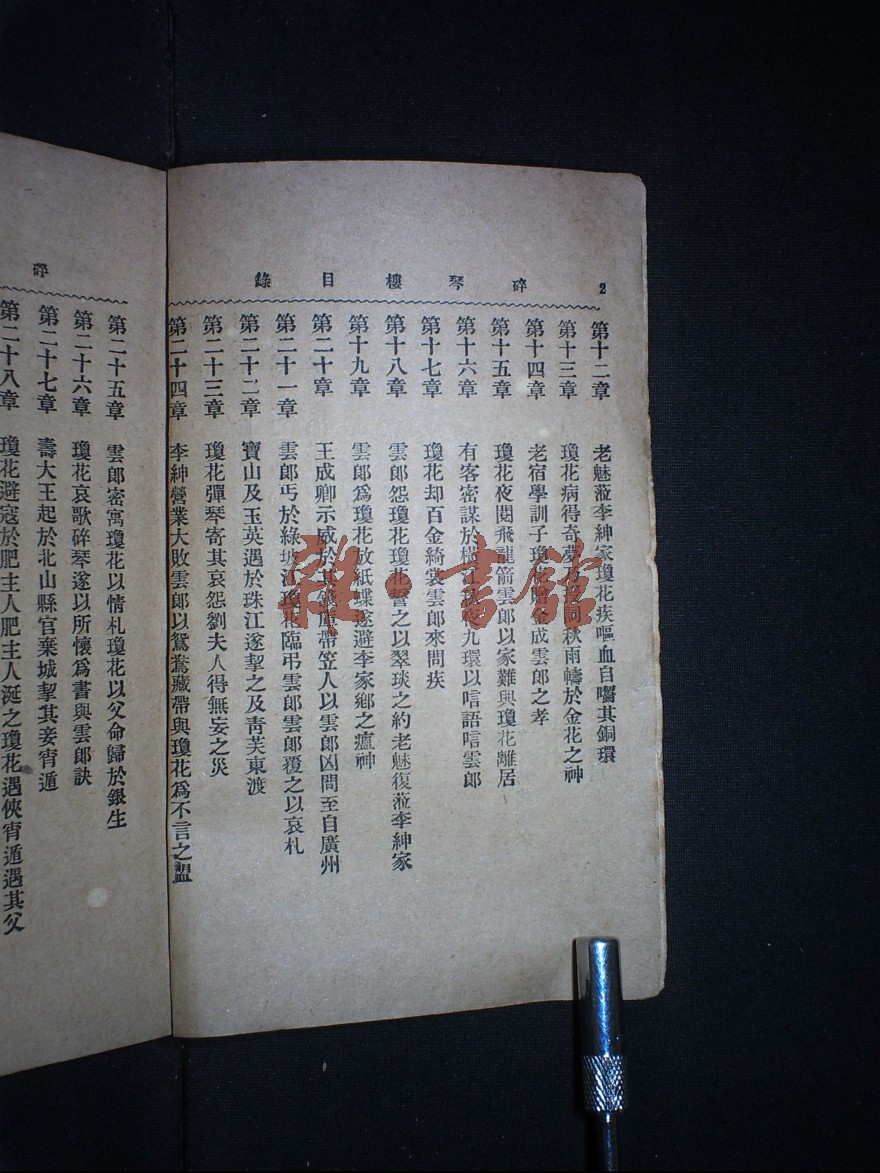 2
碎琴樓目錄
第十二章 老魅蒞李紳家瓊花疾嘔血自嚙其銅環
第十三章 瓊花病得奇夢 詞秋雨幬於金花之神
第十四章 老宿學訓子瓊花贈金成雲郎之孝
第十五章 瓊花夜閱飛龍箭雲郎以家難與瓊花離居
第十六章 有客密謀於橫江 九環以唁語唁雲郎
第十七章 瓊花却百金綺裳雲郎來問疾
第十八章 雲郎怨瓊花瓊花誓之以翠琰之約老魅復蒞李紳家
第十九章 雲郎爲瓊花放紙蝶遂避李家鄉之瘟神
第二十章 王成卿示威於其 帶笠人以雲郎凶問至自廣州
第二十一章 雲郎丐於綠坡江瓊花臨弔雲郎雲郎覆之以哀札
第二十二章 寶山及玉英遇於珠江遂挈之及靑芙東渡
第二十三章 瓊花彈琴寄其哀怨劉夫人得無妄之災
第二十四章 李紳營業大敗雲郎以鴛鴦藏帶與瓊花爲不言之盟
碎
第二十五章 雲郎密寓瓊花以情札瓊花以父命歸於銀生
第二十六章 瓊花哀歌碎琴遂以所懷爲書與雲郎訣
第二十七章 壽大王起於北山縣官棄城挈其妾宵遁
第二十八章 瓊花避寇於肥主人肥主人涎之瓊花遇俠宵遁遇其父
雜·書館